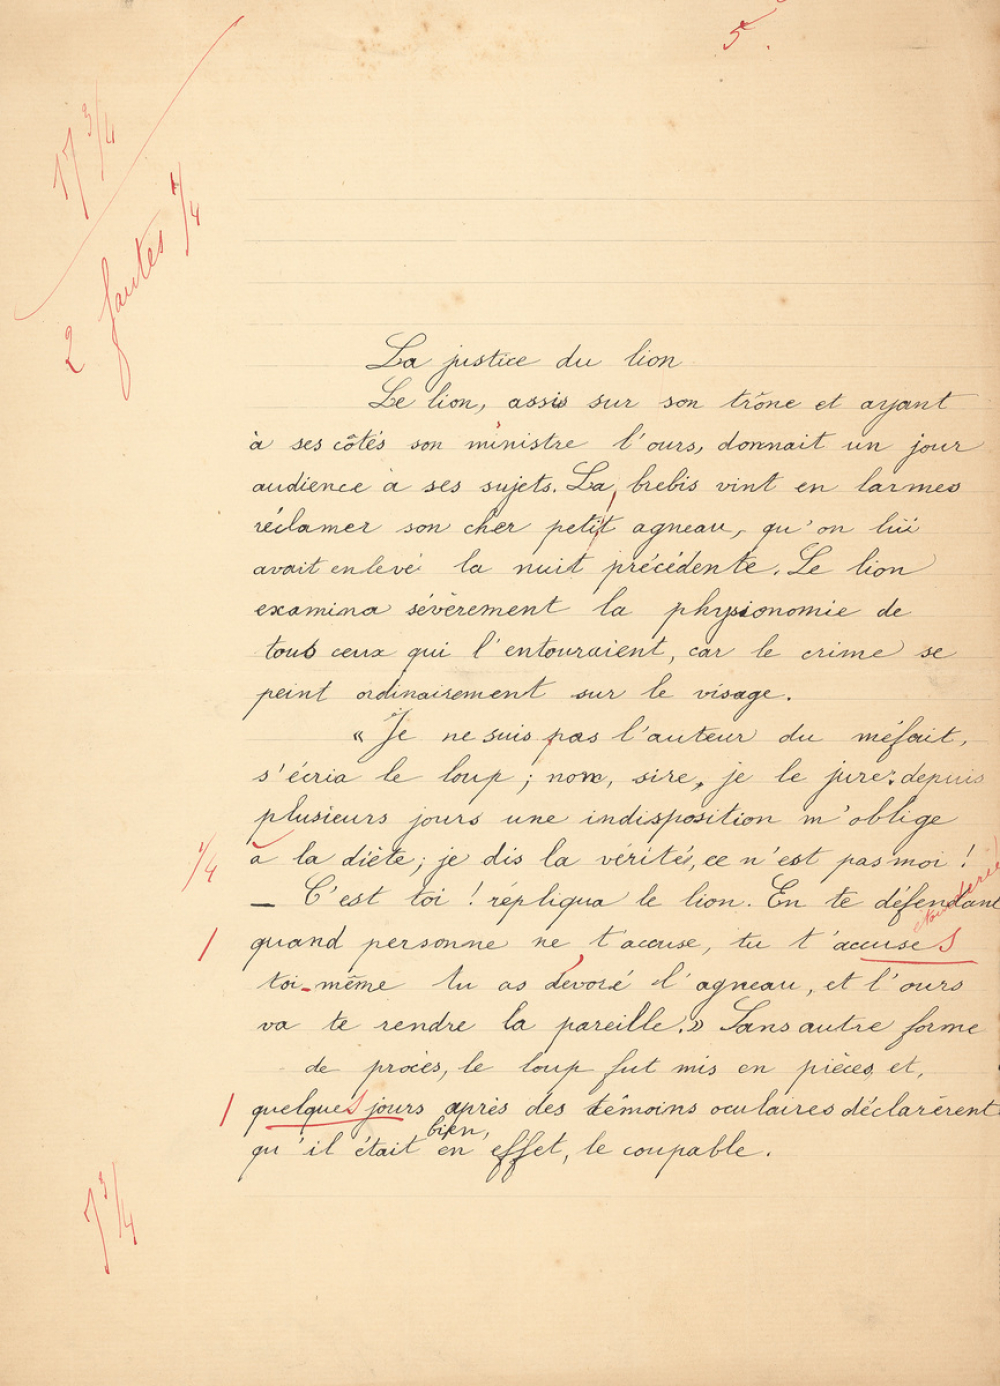 5.
17 3/4
2 fautes 1/4
La justice du lion
Le lion, assis sur son trône et ayant
à ses côtés son ministre l'ours, donnait un jour
audience à ses sujets. La brebis vint en larmes
réclamer son cher petit agneau, qu'on lui
avait enlevé la nuit précédente. Le lion
examina sévèrement la physionomie de
tous ceux qui l'entouraient, car le crime se
peint ordinairement sur le visage.
« Je ne suis pas l'auteur du méfait,
s'écria le loup ; non, sire, je le jure : depuis
plusieurs jours une indisposition m'oblige
1/4 à la diète ; je dis la vérité, ce n'est pas moi !
— C'est toi ! répliqua le lion. En te défendant
1 quand personne ne t'accuse, tu t'accuses
toi-même tu as dévoré l'agneau, et l'ours
va te rendre la pareille. » Sans autre forme
de procès, le loup fut mis en pièces, et,
1 quelques jours après des témoins oculaires déclarèrent
qu'il était bien, en effet, le coupable.